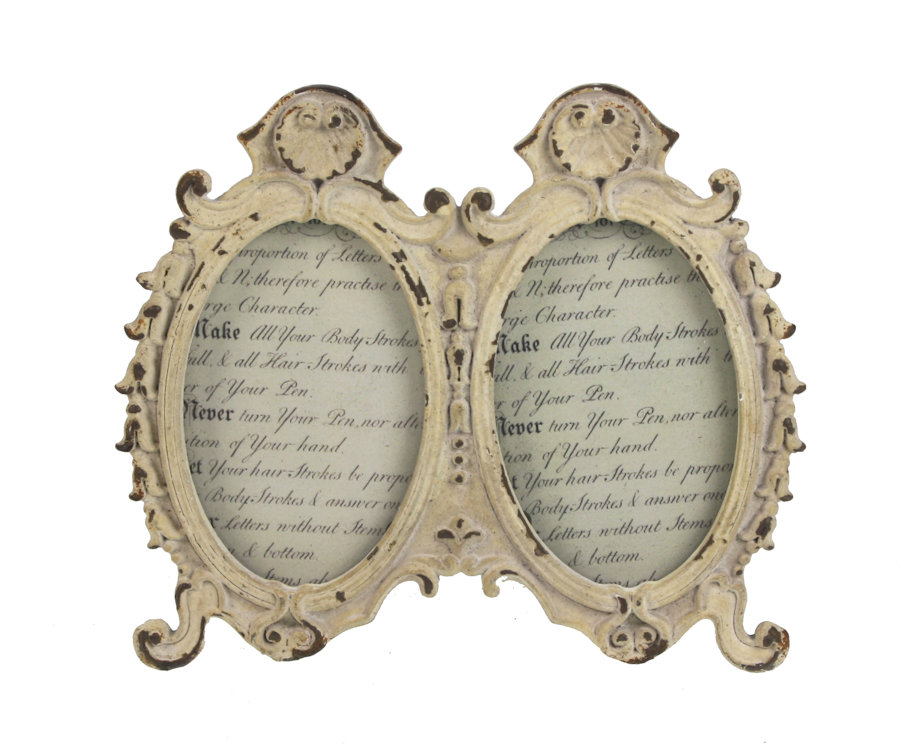 roportion of Letters
N; therefore practise
rge Character.
Make All Your Body-Strokes
ull, & all Hair Strokes with
er of Your Pen.
Never turn Your Pen, nor alte
tion of Your hand.
et Your hair-Strokes be propo
Body-Strokes & answer on
Letters without Stems
& bottom.
Stems
roportion of Letters
& N; therefore practise th
rge Character.
Make All Your Body-Strokes
ull, & all Hair Strokes with t
er of Your Pen.
Never turn Your Pen, nor alter
tion of Your hand.
t Your hair-Strokes be propor
Body-Strokes & answer one
Letters without Stems
& bottom.
Stems